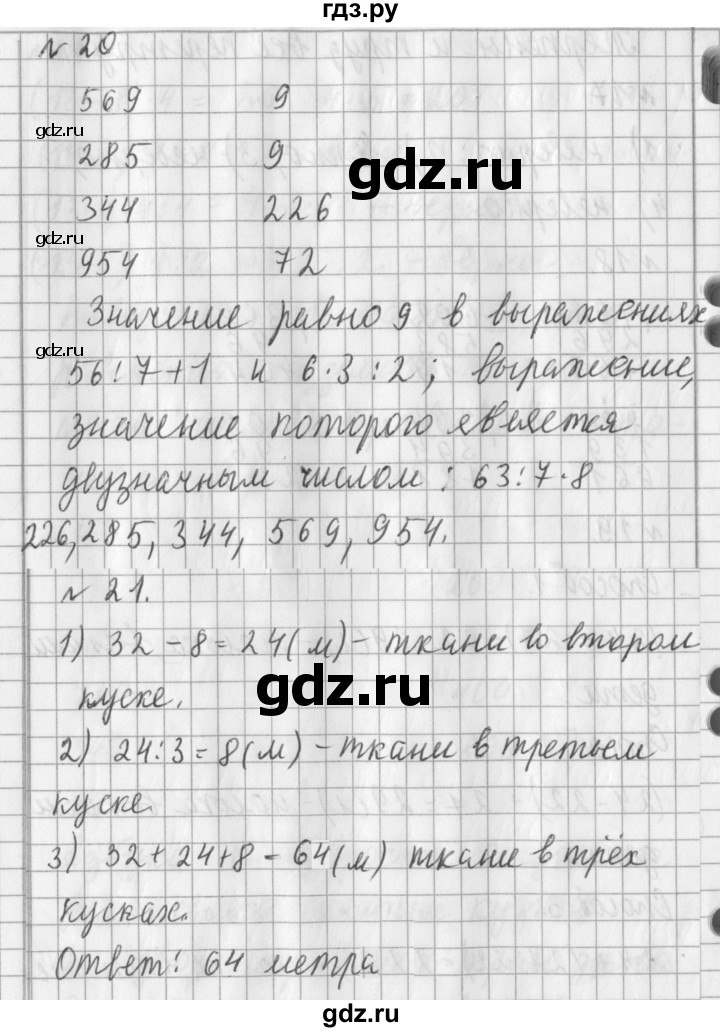 гдз.ру
№ 20
569 9
gdz.ru
285 9
gdz.ru
344 226
gdz.ru
954 72
Значение равно 9 в выражениях
gdz.ru
56:7+1 и 6·3:2; выражение,
значение которого является
двузначным числом: 63:7·8
226, 285, 344, 569, 954.
№ 21.
1) 32 - 8 = 24 (м) - ткани во втором
куске.
gdz.ru
2) 24:3 = 8 (м) - ткани в третьем
куске.
3) 32 + 24 + 8 = 64 (м) ткани в трёх
кусках.
Ответ: 64 метра
gdz.ru